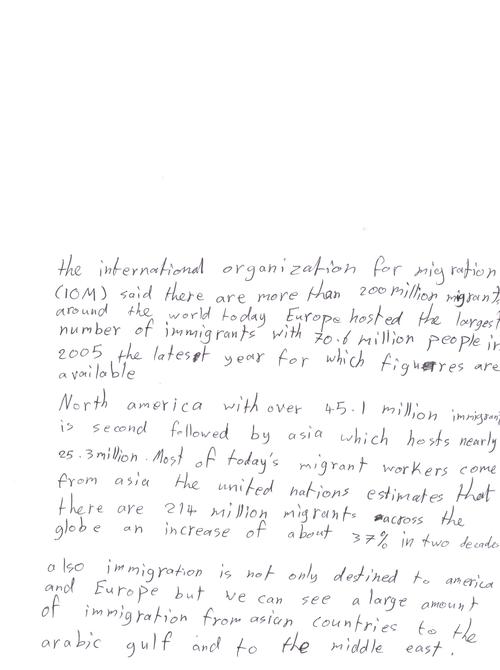 the international organization for migration
(IOM) said there are more than 200 million migrant
around the world today Europe hosted the largest
number of immigrants with 70.6 million people in
2005 the latest year for which figures are
available
North america with over 45.1 million immigran
is second followed by asia which hosts nearly
25.3 million. Most of today's migrant workers come
from asia the united nations estimates that
there are 214 million migrants across the
globe an increase of about 37% in two decades
also immigration is not only destined to america
and Europe but we can see a large amount
of immigration from asian countries to the
arabic gulf and to the middle east.